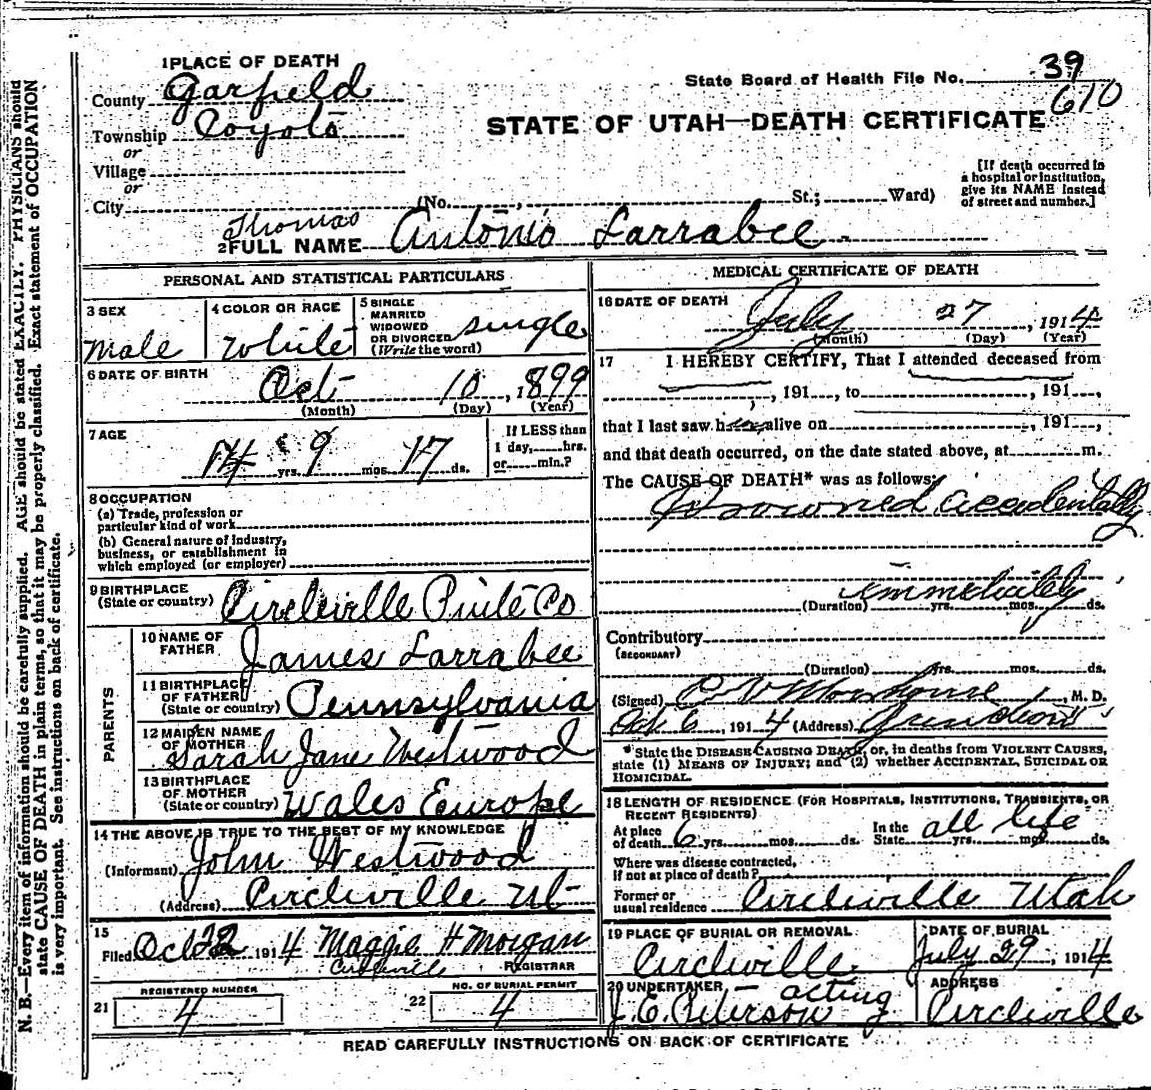 1 PLACE OF DEATH
County Garfield
Township Coyoto
or
Village
or
City (No. , St.; Ward)
State Board of Health File No. 39
610
STATE OF UTAH—DEATH CERTIFICATE
[If death occurred in
a hospital or institution,
give its NAME instead
of street and number.]
Thomas
2 FULL NAME Antonio Larrabee
PERSONAL AND STATISTICAL PARTICULARS
3 SEX
Male
4 COLOR OR RACE
White
5 SINGLE
MARRIED
WIDOWED
OR DIVORCED
(Write the word)
single
6 DATE OF BIRTH
Oct 10, 1899
(Month) (Day) (Year)
7 AGE
14 yrs. 9 mos. 17 ds.
If LESS than
1 day, hrs.
or min.?
8 OCCUPATION
(a) Trade, profession or
particular kind of work
(b) General nature of industry,
business, or establishment in
which employed (or employer)
9 BIRTHPLACE
(State or country) Circleville Piute Co
PARENTS
10 NAME OF
FATHER James Larrabee
11 BIRTHPLACE
OF FATHER
(State or country) Pennsylvania
12 MAIDEN NAME
OF MOTHER
Sarah Jane Westwood
13 BIRTHPLACE
OF MOTHER
(State or country) Wales Europe
14 THE ABOVE IS TRUE TO THE BEST OF MY KNOWLEDGE
(Informant) John Westwood
(Address) Circleville Ut
15
Filed Oct 22 1914 Maggie H Morgan
Circleville REGISTRAR
REGISTERED NUMBER
21 4
NO. OF BURIAL PERMIT
22 4
MEDICAL CERTIFICATE OF DEATH
16 DATE OF DEATH
July 27, 1914
(Month) (Day) (Year)
17 I HEREBY CERTIFY, That I attended deceased from
, 191 , to , 191 ,
that I last saw h alive on , 191 ,
and that death occurred, on the date stated above, at m.
The CAUSE OF DEATH* was as follows:
Drowned accidentally
immediately
(Duration) yrs. mos. ds.
Contributory
(SECONDARY)
(Duration) yrs. mos. ds.
(Signed) , M. D.
Oct 6, 1914 (Address) Junction
*State the DISEASE CAUSING DEATH, or, in deaths from VIOLENT CAUSES,
state (1) MEANS OF INJURY; and (2) whether ACCIDENTAL, SUICIDAL OR
HOMICIDAL.
18 LENGTH OF RESIDENCE (FOR HOSPITALS, INSTITUTIONS, TRANSIENTS, OR
RECENT RESIDENTS)
At place
of death 6 yrs. mos. ds.
In the
State all life yrs. mos. ds.
Where was disease contracted,
if not at place of death?
Former or
usual residence Circleville Utah
19 PLACE OF BURIAL OR REMOVAL
Circleville
DATE OF BURIAL
July 29, 1914
20 UNDERTAKER acting
J. E. Peterson
ADDRESS
Circleville
READ CAREFULLY INSTRUCTIONS ON BACK OF CERTIFICATE
N. B.—Every item of information should be carefully supplied. AGE should be stated EXACTLY. PHYSICIANS should
state CAUSE OF DEATH in plain terms, so that it may be properly classified. Exact statement of OCCUPATION
is very important. See instructions on back of certificate.